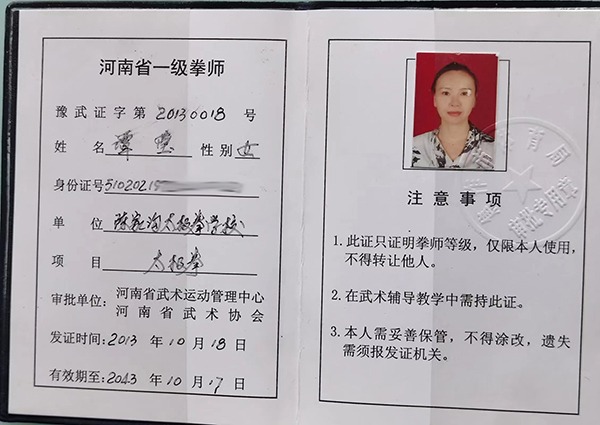 河南省一级拳师
豫武证字第 20130018 号
姓 名 谭 性别 女
身份证号 51020219
单 位 陈家沟太极拳学校
项 目 太极拳
审批单位: 河南省武术运动管理中心
河南省武术协会
发证时间: 2013 年 10 月 18 日
有效期至: 2043 年 10 月 17 日
注意事项
1. 此证只证明拳师等级,仅限本人使用,
不得转让他人。
2. 在武术辅导教学中需持此证。
3. 本人需妥善保管,不得涂改,遗失
需须报发证机关。